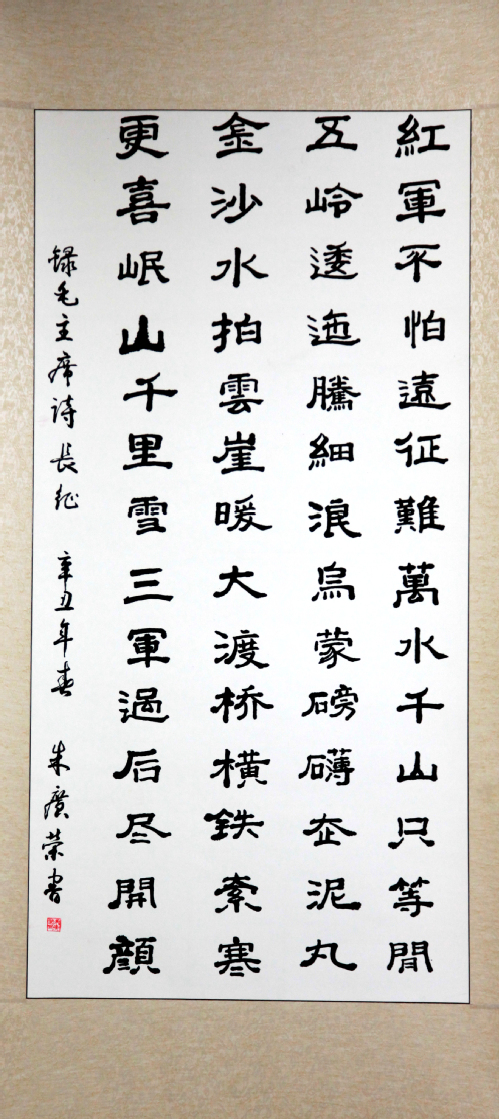 紅軍不怕遠征難萬水千山只等閒
五岭逶迤騰細浪烏蒙磅礴走泥丸
金沙水拍雲崖暖大渡桥橫铁索寒
更喜岷山千里雪三軍過后尽開顔
録毛主席诗長征 辛丑年春 朱廣荣書